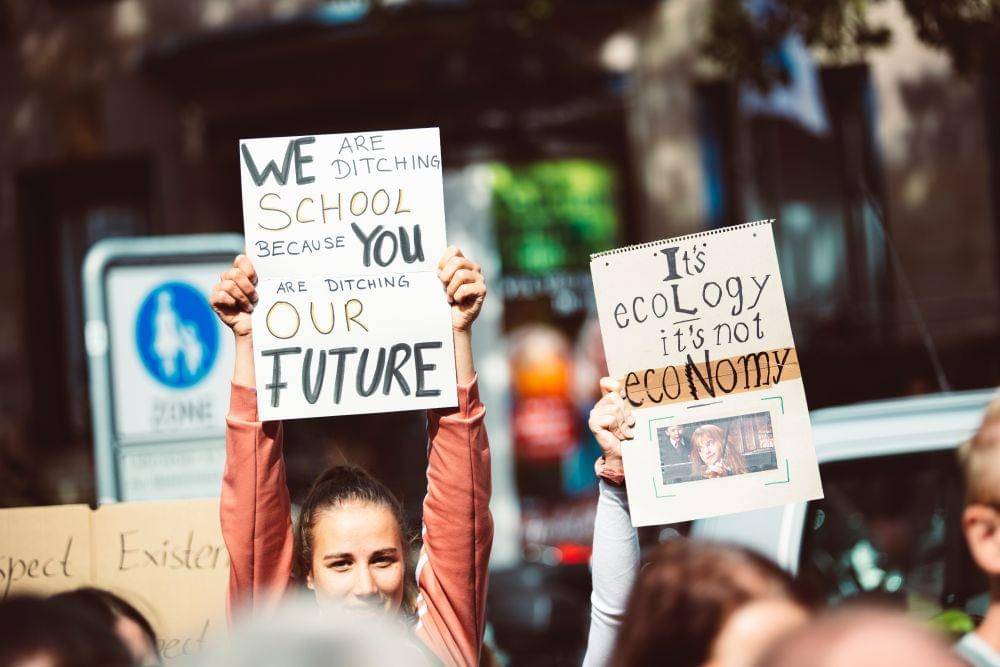 WE ARE
DITCHING
SCHOOL
BECAUSE YOU
ARE DITCHING
OUR
FUTURE
It's
ecoLogy
it's not
ecoNomy
ZONE
spect
Existen
pect